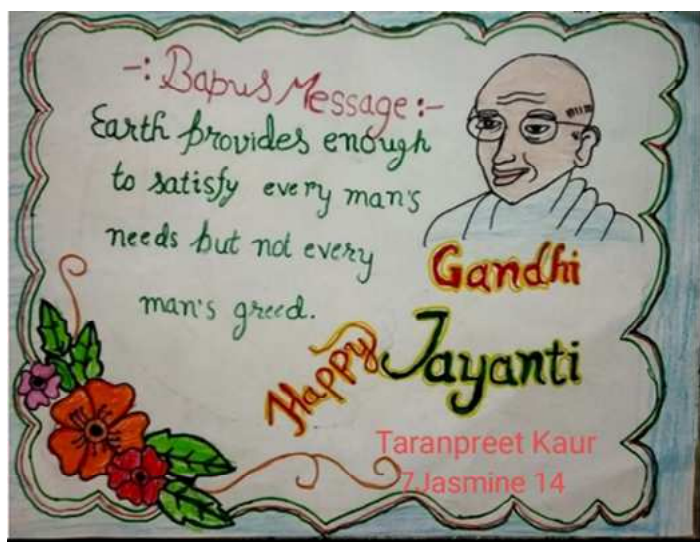 -: Bapus Message :-
Earth provides enough
to satisfy every man's
needs but not every
man's greed.
Gandhi
Happy Jayanti
Taranpreet Kaur
7Jasmine 14